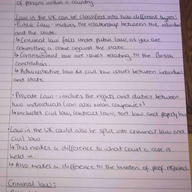 of persons within a country.
Law in the UK can be classified into two different types:
Public Law: makes the relationship between the individual
and the state.
Criminal law falls under public law, as you are
committing a crime against the state.
Constitutional law are issues relating to the British
constitution
Administrative law as civil law issues between individual
and state.
Private Law: makes the rights and duties between
two individuals (can also mean companies)
includes civil law, contract law, tort law and family law
Law in the UK could also be split into criminal law and
civil law.
This makes a difference to what court a case is
held in
Also makes a difference to the burden of proof required
Criminal law: